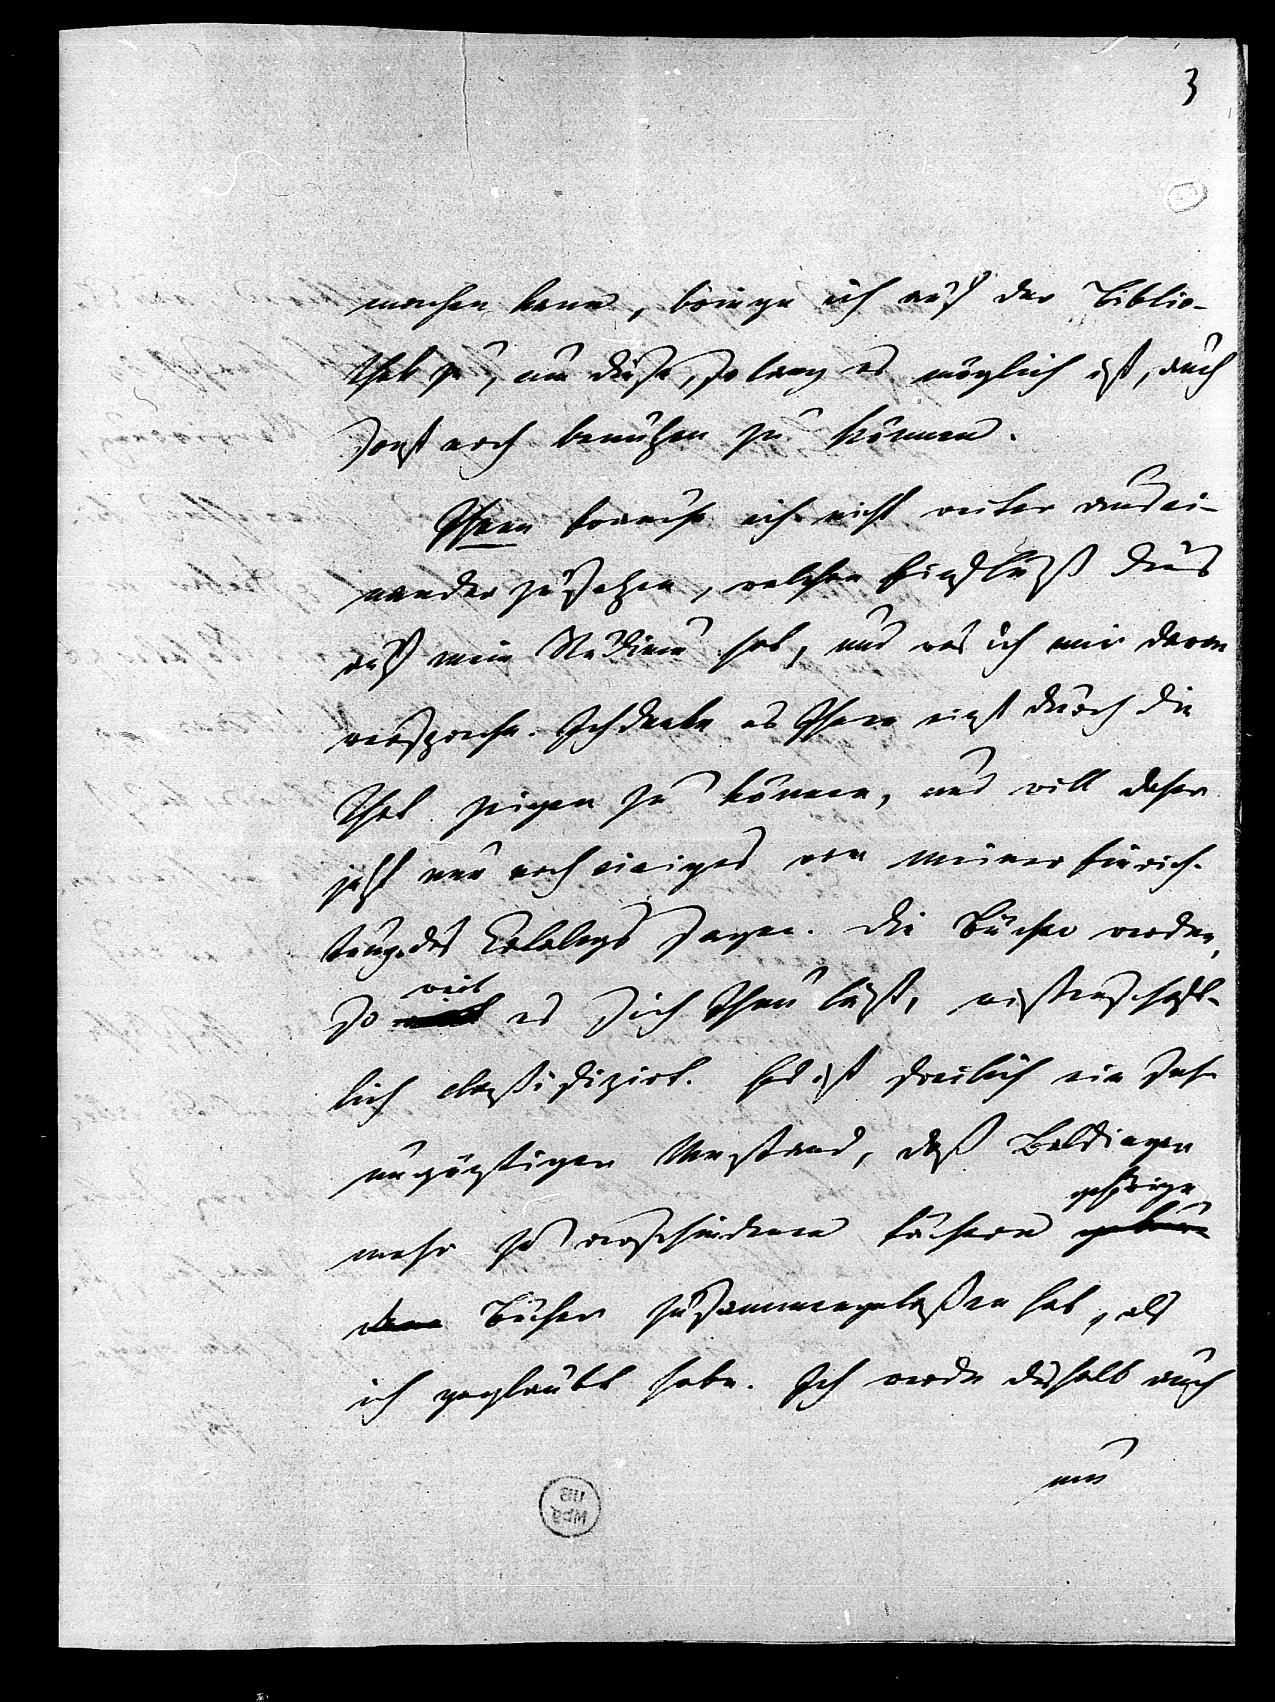 3
machen kann, bringe ich auf der Biblio-
thek zu, um diese, so lang es möglich ist, auch
sonst noch benutzen zu können.
Ihnen brauche ich nicht weiter ausei-
nander zusetzen, welchen Einfluß dies
auf mein Studium hat, und was ich mir davon
verspreche. Ich denke es Ihnen einst durch die
That zeigen zu können, und will daher
jetzt nur noch einiges von meiner Einrich-
tung des Catalogs sagen. Die Bücher werden,
so weit es sich thun läßt, wissenschaft-
lich classifizirt. Es ist freilich ein sehr
ungünstiger Umstand, daß Baldinger
mehr zu verschiedenen Fächern gehörige
Bücher zusammengelaßen hat, als
ich geglaubt habe. Ich werde deshalb auch
nur
UB
Mbg